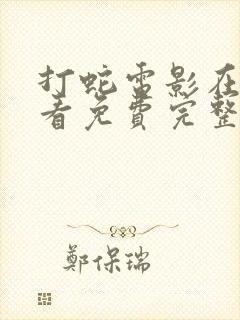 打蛇雷影在
看免费完整
鄭保瑞